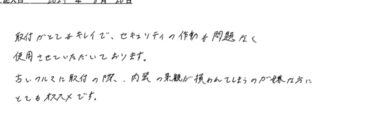 取付がとてもキレイで、セキュリティの作動も問題なく
使用させていただいております。
古いクルマに取付の際、内装の景観が損われてしまうのが嫌な方に
とてもオススメです。